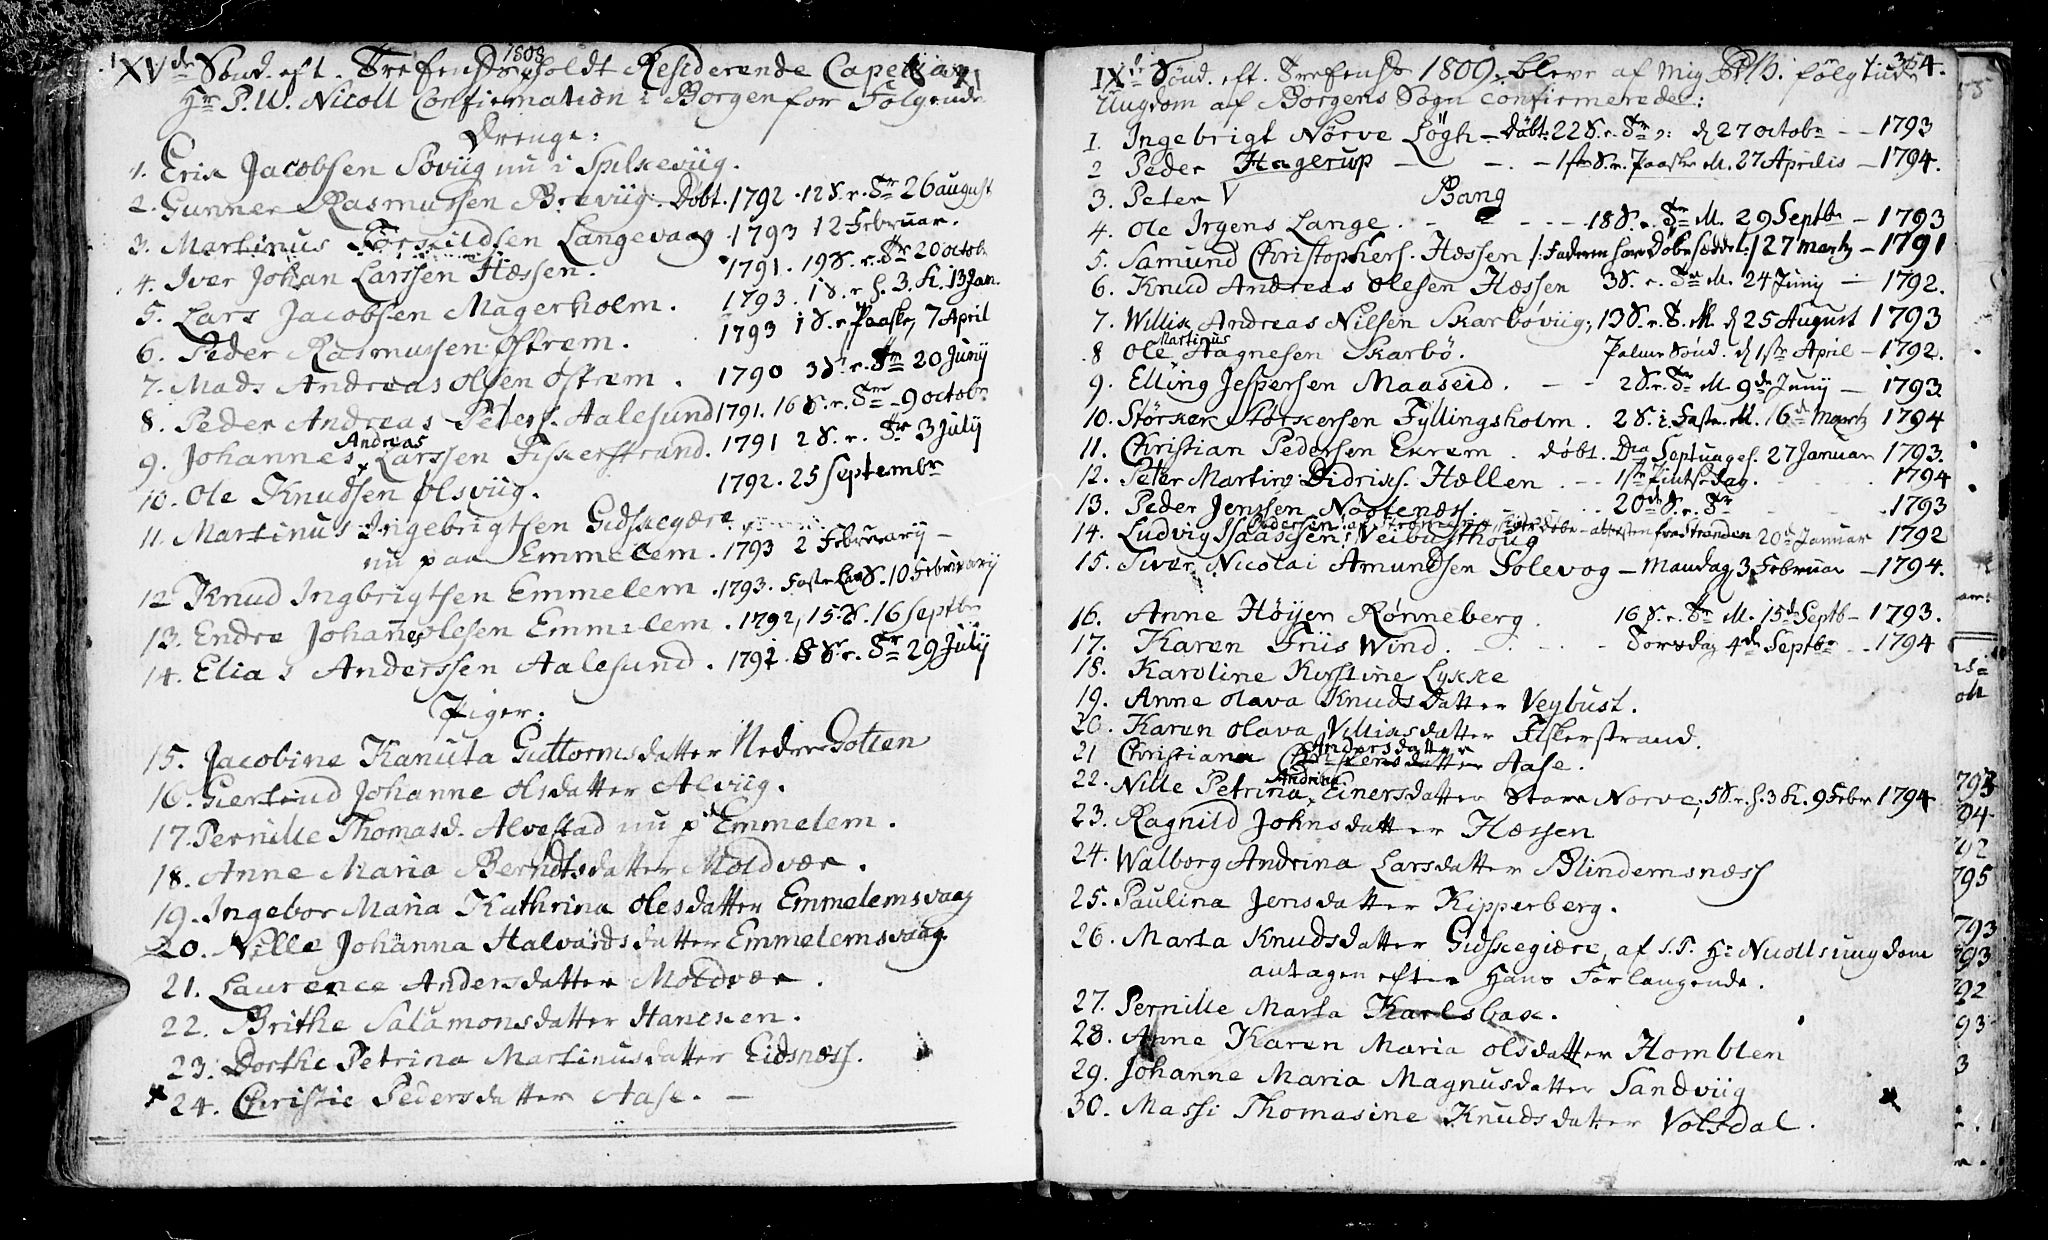 XVde Sønd. eft. Trefens 1808 holdt Residerende Capellan
Hr P. U. Nicoll Confirmation i Borgen for Følgende
Drenge:
1. Erik Jacobsen Søviig nu i Spilkeviig.
2. Gunner Rasmussen Breviig. Døbt. 1792. 12 S. e. Tr 26 august
3. Martinus Torkildsen Langevaag 1793 12 Februar.
4. Iver Johan Larssen Hæssen. 1791. 19 S. e. Tr 20 octobr
5. Lars Jacobsen Magerholm. 1793. 1 S. e. h. 3. K. 13 Jan.
6. Peder Rasmussen Østrem. 1793 1 S. e Paaske, 7 April
7. Mads Andreas Olsen Østrem. 1790 3 S. e. Tr 20 Junij
8. Peder Andreas Peders. Aalesund 1791. 16 S. e. Tr 9 octobr
9. Johannes Andreas Larssen Fiskerstrand. 1791 2 S. e. Tr 3 Julij
10. Ole Knudsen Olsviig. 1792. 25 Septembr
11. Martinus Ingebrigtsen Gidskegiære
nu paa Emmelem. 1793 2 Februarij
12 Knud Ingbrigtsen Emmelem. 1793. Fastelav S. 10 Februarij
13. Endre Johannes Olesen Emmelem. 1792, 15. S. 16 Septbr
14. Elias Anderssen Aalesund. 1792. 8 S. e. Tr 29 Julij
Piger:
15. Jacobine Kanuta Guttormsdatter Neder
16. Giertrud Johanne Olsdatter Alviig.
17. Pernille Thomasd. Alvestad nu p Emmelem.
18. Anne Maria Berndtsdatter Moldvær.
19. Ingebor Maria Kathrina Olesdatter Emmelemsvaag
20. Nille Johanna Halvardsdatter Emmelemsvaag.
21. Laurence Andersdatter Moldvær.
22. Brithe Salamonsdatter Hanesen.
23. Dorthe Petrina Martinusdatter Eidsnæss.
24. Christie Pedersdatter Aase.
IXde Sønd. eft. Trefens 1809. bleve af mig følgende 364.
Ungdom af Borgens Sogn confirmerede:
1. Ingebrigt Nørve Løgh Døbt. 22 S. e. Tr d 27 octobr 1793
2 Peder Hagerup 1ste S. e. Paaske M. 27 Aprilis 1794.
3. Peter V Bang
4. Ole Irgens Lange. 18 S. e. Tr M. 29 Septbr 1793
5. Samund Christophers. Hæssen /: Faderen har Døbe seddel :/ 27 martz 1791
6. Knud Andreas Olesen Hæssen 3 S. e. Tr M. 24 Junij 1792.
7. Willik Andreas Nilsen Skarbøviig, 13 S. e. T. M. d 25 August 1793
8 Ole Martinus Hagnesen Skarbø. Palme Sønd. d 1ste April 1792.
9. Elling Jespersen Maaseid. 2 S. e. Tr M 9de Junij 1793.
10. Størker Størkersen Fyllingsholm. 2 S. i Faste. M. 16de Martz 1794
11. Christian Pedersen Ekrem. døbt. Dca Septuages. 27 Januar 1793.
12. Peter Martin Didriks. Hællen 1ste Pintsedag. 1794
13. Peder Jenssen Nootenæss. 20de S. e. Tr 1793
14. Ludvig Isaacsen Pedersen Veibusthoug 20de Januar 1792
15. Siver Nicolai Amundsen Solevog Mandag 3 Februar 1794.
16. Anne Høyer Rønneberg. 16 S. e. Tr M. 15de Septb 1793.
17. Karen Friis Wind. Torsdag 4de Septbr 1794
18. Karoline Kirstine Lykke
19. Anne Olava Knudsdatter Veybust.
20. Karen Olava Villiksdatter Fiskerstrand.
21 Christiana Andersdatter Aase.
22. Nille Petrina Andrina Einersdatter Store Norve, 5 S. e. h. 3 K. 9 Febr 1794
23. Ragnild Johnsdatter Hæssen
24. Walborg Andrina Larsdatter Blindemsnæss
25. Paulina Jensdatter Kipperberg.
26. Marta Knudsdatter Gidskegiære, af S. T. Hr Nicolls ungdom
antagen efter Hans Forlangende.
27. Pernille Marta Karlsbak.
28. Anne Karen Maria Olsdatter Homblen
29. Johanne Maria Magnusdatter Sandviig
30. Massi Thomasine Knudsdatter Volsdal.